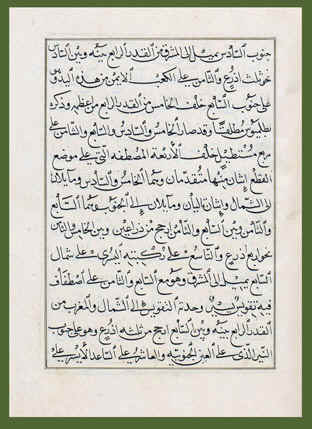 جنوب السادس يميل الى المشرق من القدر الرابع بينه وبين السادس
نحو ثلث اذرع والثامن على الكعب الايمن من هذه اليد وهو
على جنوب السابع خلف الخامس من القدر الرابع من اعظمه وذكره
بطلميوس مطلقا وقد صار الخامس والسادس والسابع والثامن على
مربع مستطيل خلف الاربعة المصطفة التي على موضع
القطع اثنان منها متقدمان وهما الخامس والسادس ومايلان
الى الشمال واثنان تاليان ومايلان الى الجنوب وهما السابع
والثامن وبين السابع والثامن ارجح من ذراعين وبين الخامس والثامن
نحو اربع اذرع والتاسع على ركبته اليسرى على شمال
السابع يميل الى المشرق وهو مع السابع والثامن على اصطفاف
فيه تقويس وحدبة التقويس الى الشمال والمغرب من
القدر الرابع بينه وبين السابع ارجح من ثلثة اذرع وهو على جنوب
النير الذي على العين الجنوبية والعاشر على الساعد الايسر على